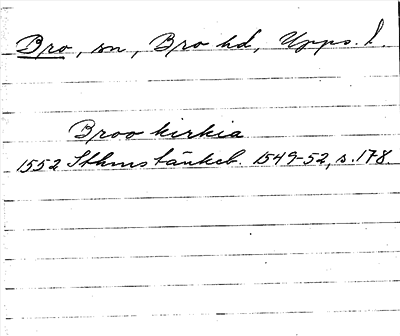 Bro, sn, Bro hd, Upps. l.
Broo kirkia
1552 Sthms tänkeb. 1549-52, s. 178